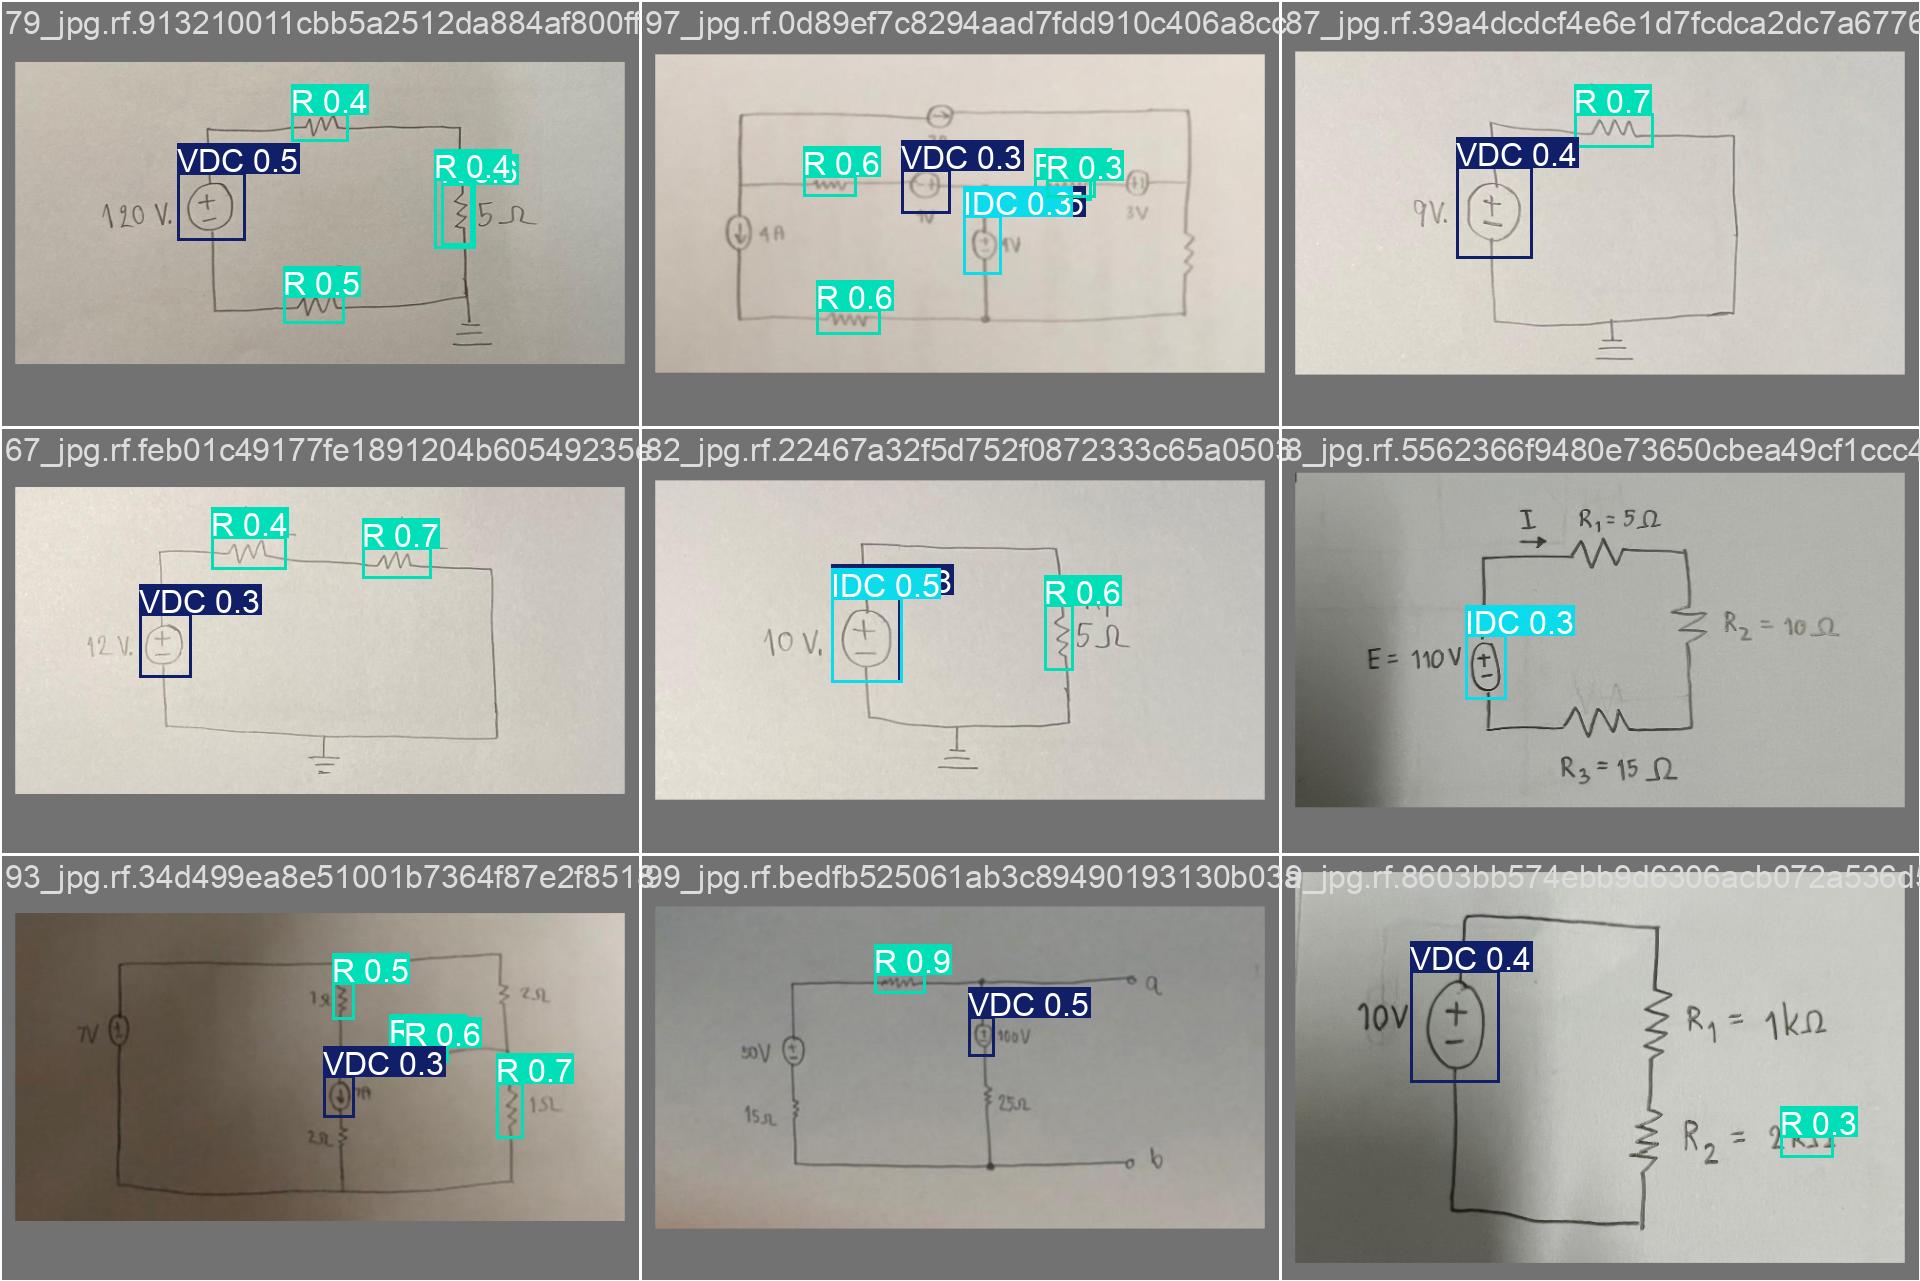 79_jpg.rf.913210011cbb5a2512da884af800ff
R 0.4
VDC 0.5
R 0.4
120 V.
5 Ω
R 0.5
97_jpg.rf.0d89ef7c8294aad7fdd910c406a8cc
R 0.6
VDC 0.3
R 0.3
IDC 0.3
4A
1V
3V
R 0.6
87_jpg.rf.39a4dcdcf4e6e1d7fcdca2dc7a6776
R 0.7
VDC 0.4
9V.
67_jpg.rf.feb01c49177fe1891204b60549235e
R 0.4
R 0.7
VDC 0.3
12 V.
82_jpg.rf.22467a32f5d752f0872333c65a0503
IDC 0.5
R 0.6
10 V.
5 Ω
8_jpg.rf.5562366f9480e73650cbea49cf1ccc4
I
R₁ = 5 Ω
IDC 0.3
R₂ = 10 Ω
E = 110 V
R₃ = 15 Ω
93_jpg.rf.34d499ea8e51001b7364f87e2f8513
R 0.5
1Ω
2Ω
7V
R 0.6
VDC 0.3
R 0.7
1Ω
2Ω
99_jpg.rf.bedfb525061ab3c89490193130b03
R 0.9
a
VDC 0.5
100V
50V
15Ω
25Ω
b
_jpg.rf.8603bb574ebb9d6306acb072a536d5
VDC 0.4
10V
R₁ = 1kΩ
R 0.3
R₂ =